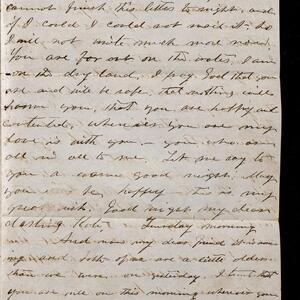 cannot finish this letter to night, and
if I could I could not mail it. So
I will not write much more now.
You are far out on the water, I am
on the dry land, I pray God that you
are and will be safe, that nothing will
harm you, that you are happy and
contented, wherever you are my
love is with you, you who are
all in all to me. Let me say to
you a warm good night. May
you be happy This is my
great wish. Good night my dear
darling Kate Tuesday morning
And now my dear friend it is morn
ing and both of us are a little older
than we were on yesterday. I trust that
you are well on this morning wherever you